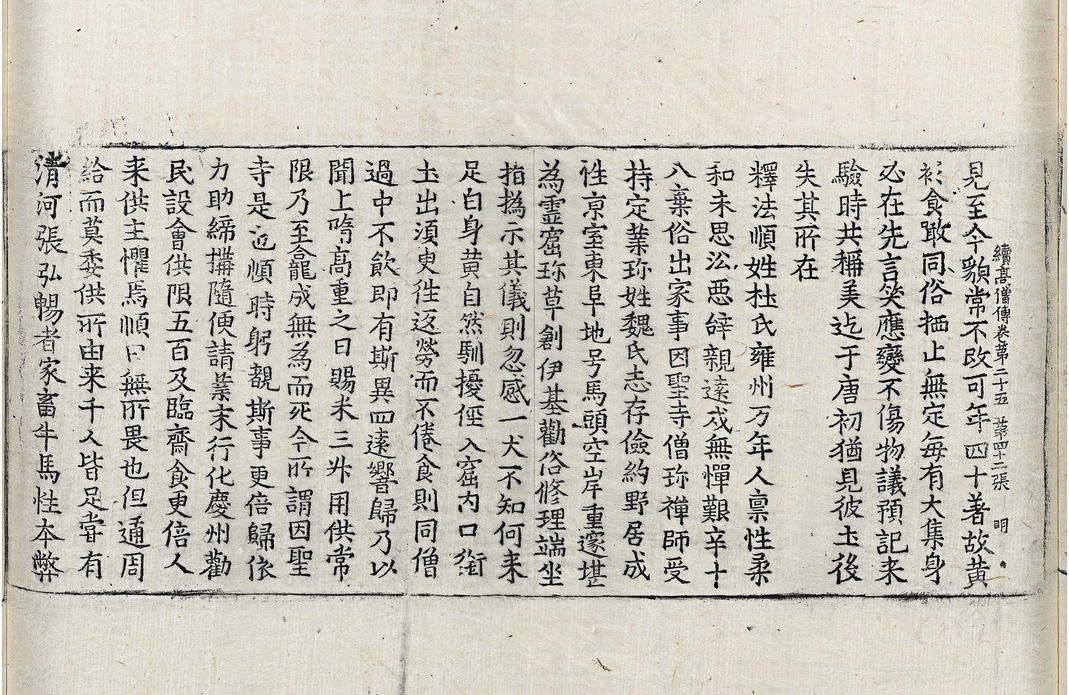 見至今貌常不改可年四十著故黄
續高僧傳卷第二十五 第四十二張 明
衫食噉同俗栖止無定每有大集身
必在先言笑應變不傷物議預記来
驗時共稱美迄于唐初猶見彼土後
失其所在
釋法順姓杜氏雍州万年人禀性柔
和未思沿惡辞親遠戍無憚艱辛十
八棄俗出家事因聖寺僧珎禪師受
持定業珎姓魏氏志存儉約野居成
性京室東阜地号馬頭空岸重邃堪
為靈窟珎草創伊基勸俗修理端坐
指撝示其儀則忽感一犬不知何来
足白身黄自然馴擾徑入窟内口銜
土出湏臾徃返勞而不倦食則同僧
過中不飲即有斯異四遠響歸乃以
聞上隋高重之日賜米三升用供常
限乃至龕成無為而死今所謂因聖
寺是也順時躬覩斯事更倍歸依
力助締搆隨便請業末行化慶州勸
民設會供限五百及臨齋食更倍人
来供主懼焉順曰無所畏也但通周
給而莫委供所由来千人皆足嘗有
清河張弘暢者家畜牛馬性本弊